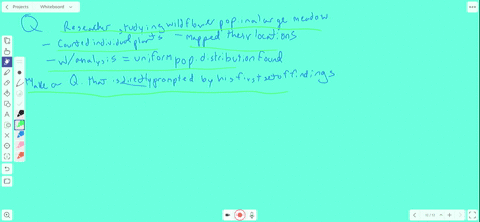 Projects Whiteboard
Q Researcher, studying wildflower pop in a large meadow
- Counted individual plants - mapped their locations
- w/ analysis = uniform pop. distribution found
Make a Q. that is directly prompted by his first set of findings